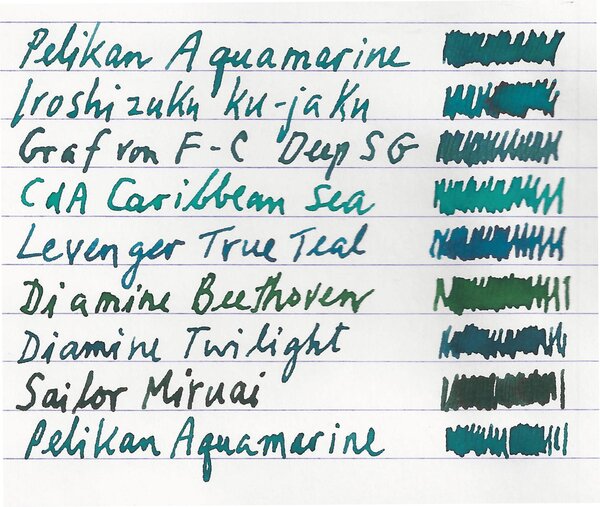 Pelikan Aquamarine
Iroshizuku Ku-jaku
Graf von F-C Deep SG
CdA Caribbean Sea
Levenger True Teal
Diamine Beethoven
Diamine Twilight
Sailor Miruai
Pelikan Aquamarine